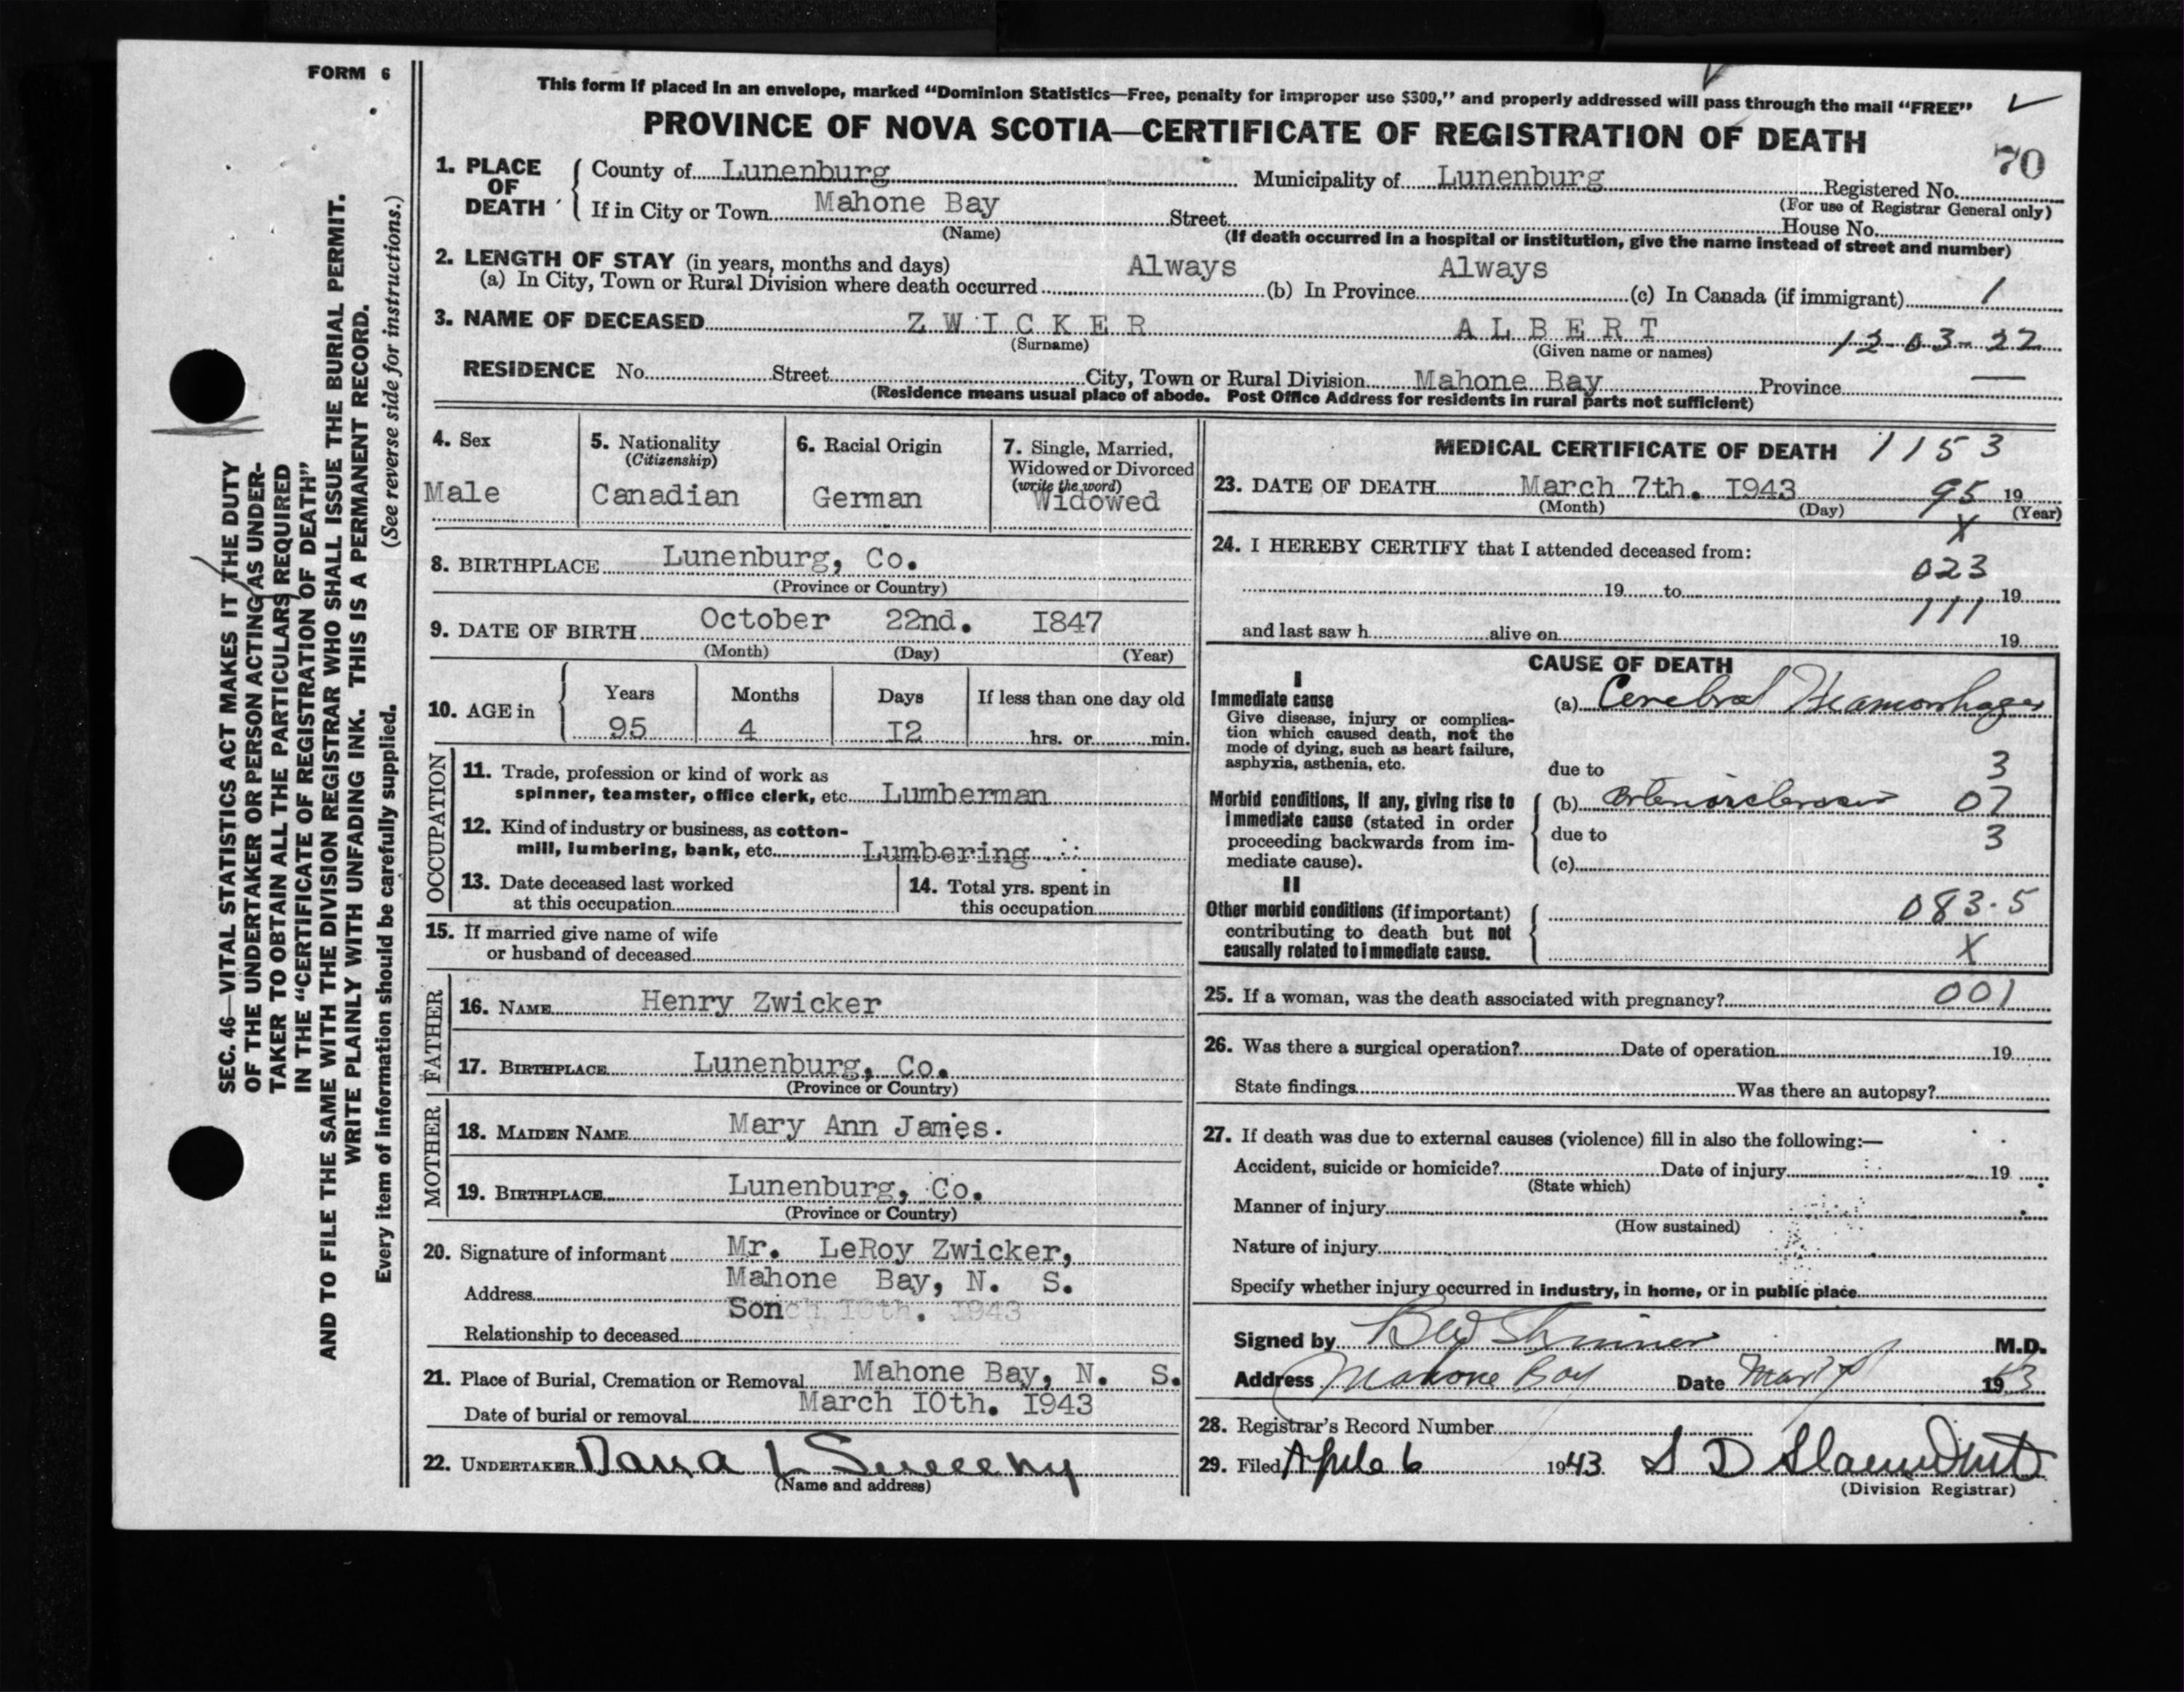 FORM 6
This form if placed in an envelope, marked “Dominion Statistics—Free, penalty for improper use $300,” and properly addressed will pass through the mail “FREE”
PROVINCE OF NOVA SCOTIA—CERTIFICATE OF REGISTRATION OF DEATH
70
1. PLACE OF DEATH
County of Lunenburg Municipality of Lunenburg Registered No.
(For use of Registrar General only)
If in City or Town Mahone Bay Street House No.
(Name) (If death occurred in a hospital or institution, give the name instead of street and number)
2. LENGTH OF STAY (in years, months and days)
(a) In City, Town or Rural Division where death occurred Always (b) In Province Always (c) In Canada (if immigrant) 1
3. NAME OF DECEASED ZWICKER ALBERT 12-03-22
(Surname) (Given name or names)
RESIDENCE No. Street City, Town or Rural Division Mahone Bay Province —
(Residence means usual place of abode. Post Office Address for residents in rural parts not sufficient)
4. Sex
Male
5. Nationality
(Citizenship)
Canadian
6. Racial Origin
German
7. Single, Married,
Widowed or Divorced
(write the word)
Widowed
8. BIRTHPLACE Lunenburg, Co.
(Province or Country)
9. DATE OF BIRTH October 22nd. I847
(Month) (Day) (Year)
10. AGE in
Years Months Days If less than one day old
95 4 I2 hrs. or min.
OCCUPATION
11. Trade, profession or kind of work as
spinner, teamster, office clerk, etc. Lumberman
12. Kind of industry or business, as cotton-
mill, lumbering, bank, etc. Lumbering
13. Date deceased last worked
at this occupation
14. Total yrs. spent in
this occupation
15. If married give name of wife
or husband of deceased
FATHER
16. NAME Henry Zwicker
17. BIRTHPLACE Lunenburg, Co.
(Province or Country)
MOTHER
18. MAIDEN NAME Mary Ann James.
19. BIRTHPLACE Lunenburg, Co.
(Province or Country)
20. Signature of informant Mr. LeRoy Zwicker,
Address Mahone Bay, N. S.
Son
Relationship to deceased
21. Place of Burial, Cremation or Removal Mahone Bay, N. S.
Date of burial or removal March I0th. I943
22. UNDERTAKER Dana L Sweeny
(Name and address)
MEDICAL CERTIFICATE OF DEATH 1153
23. DATE OF DEATH March 7th. I943 95 19
(Month) (Day) (Year)
X
24. I HEREBY CERTIFY that I attended deceased from:
023
19 to 19
111
and last saw h alive on 19
CAUSE OF DEATH
I
Immediate cause
Give disease, injury or complica-
tion which caused death, not the
mode of dying, such as heart failure,
asphyxia, asthenia, etc.
(a) Cerebral Heamorrhages
due to 3
Morbid conditions, if any, giving rise to
immediate cause (stated in order
proceeding backwards from im-
mediate cause).
(b) Arteriosclerosis 07
due to 3
(c)
II
Other morbid conditions (if important)
contributing to death but not
causally related to immediate cause.
083.5
X
25. If a woman, was the death associated with pregnancy? 001
26. Was there a surgical operation? Date of operation 19
State findings Was there an autopsy?
27. If death was due to external causes (violence) fill in also the following:—
Accident, suicide or homicide? Date of injury 19
(State which)
Manner of injury
(How sustained)
Nature of injury
Specify whether injury occurred in industry, in home, or in public place
Signed by M.D.
Address Mahone Bay Date 1943
28. Registrar's Record Number
29. Filed 6 1943 S D
(Division Registrar)
SEC. 46—VITAL STATISTICS ACT MAKES IT THE DUTY
OF THE UNDERTAKER OR PERSON ACTING AS UNDER-
TAKER TO OBTAIN ALL THE PARTICULARS REQUIRED
IN THE “CERTIFICATE OF REGISTRATION OF DEATH”
AND TO FILE THE SAME WITH THE DIVISION REGISTRAR WHO SHALL ISSUE THE BURIAL PERMIT.
WRITE PLAINLY WITH UNFADING INK. THIS IS A PERMANENT RECORD.
Every item of information should be carefully supplied. (See reverse side for instructions.)